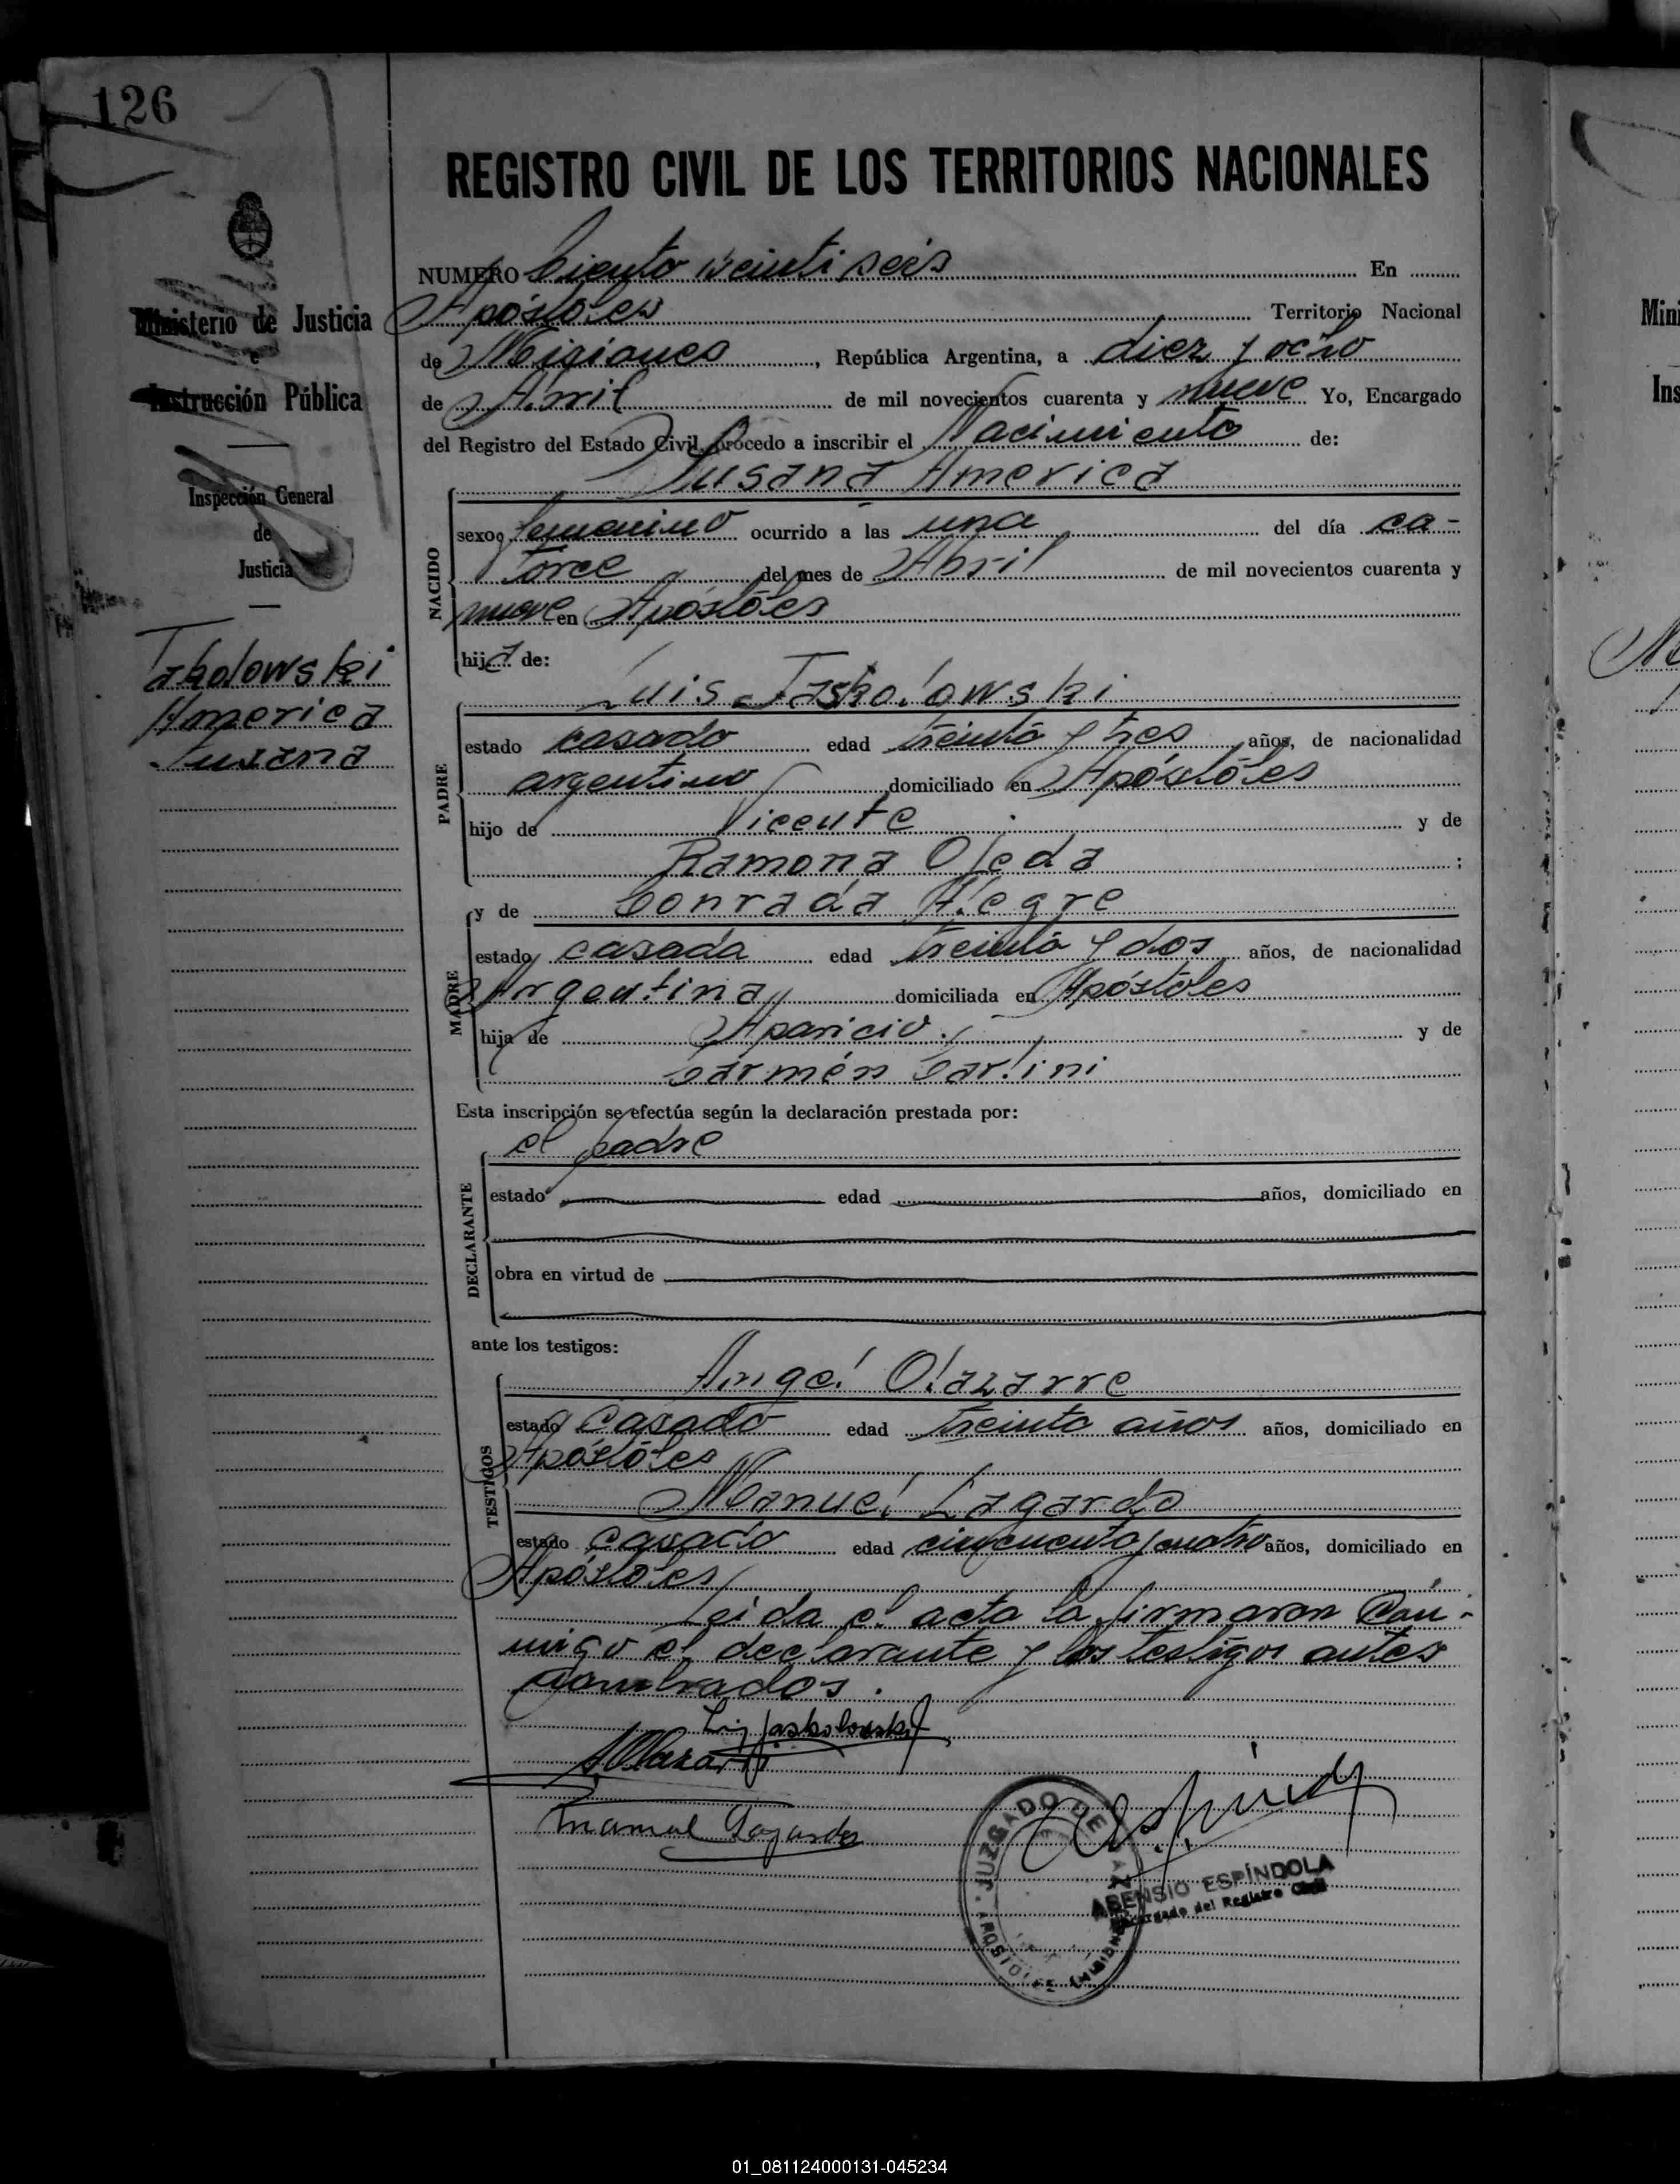 126
REGISTRO CIVIL DE LOS TERRITORIOS NACIONALES
NUMERO Ciento veinti seis En
Apóstoles Territorio Nacional
de Misiones, República Argentina, a diez y ocho
de Abril de mil novecientos cuarenta y nueve Yo, Encargado
del Registro del Estado Civil, procedo a inscribir el Nacimiento de:
Susana America
NACIDO
sexo femenino ocurrido a las una del día ca-
torce del mes de Abril de mil novecientos cuarenta y
nueve en Apóstoles
hija de:
Luis Jaskolowski
PADRE
estado casado edad treinta y tres años, de nacionalidad
argentino domiciliado en Apóstoles
hijo de Vicente y de
Ramona Ojeda ;
y de Conrada Alegre
MADRE
estado casada edad treinta y dos años, de nacionalidad
Argentina domiciliada en Apóstoles
hija de Aparicio y de
Carmén
Esta inscripción se efectúa según la declaración prestada por:
el padre
DECLARANTE
estado edad años, domiciliado en
obra en virtud de
ante los testigos:
Angel Olazarre
TESTIGOS
estado Casado edad treinta años años, domiciliado en
Apóstoles
Manuel Lagardo
estado casado edad cincuenta y cuatro años, domiciliado en
Apóstoles
Leida el acta la firmaron Con-
migo el declarante y los testigos antes
nombrados.
Luis Jaskolowski
Manuel
JUZGADO DE PAZ
APOSTOLES (MISIONES)
ASENSIO ESPÍNDOLA
Encargado del Registro Civil
Ministerio de Justicia
e
Instrucción Pública
Inspección General
de
Justicia
America
Susana
Mini
Ins
01_081124000131-045234